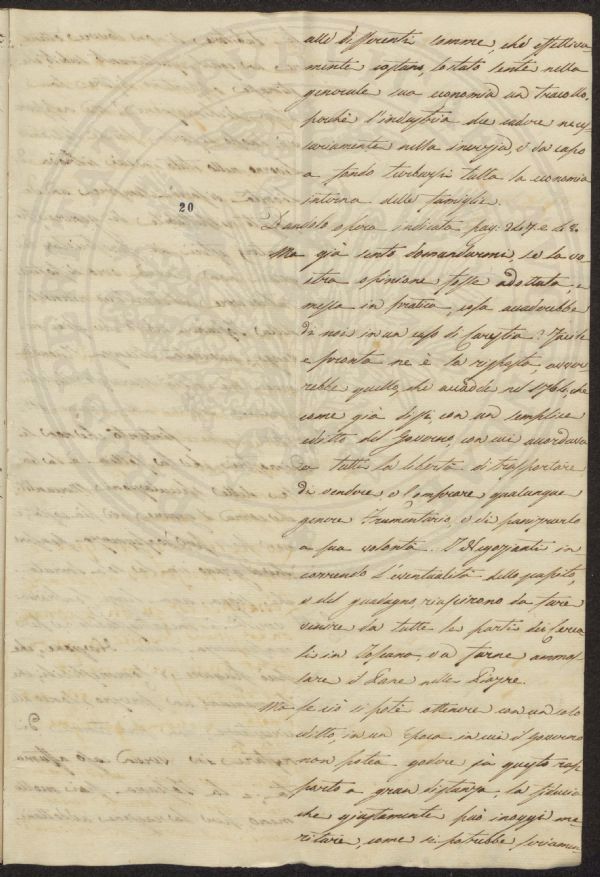 alle differenti somme, che effettiva
mente costano, lo stato sente nella
generale sua economia un tracollo,
perchè l'industria dee cadere neces
sariamente nella inerzia, e da capo
a fondo turbarsi tutta la economia
interna delle famiglie.
20
Dandolo opera indicata pag: 247 e 48.
Ma già sento domandarmi, se la vo
stra opinione fosse adottata, e
messa in pratica, cosa accaderebbe
di noi in un caso di Carestia? Facile
e pronta ne è la risposta, avver
rebbe quello, che accadde nel 1766, che
come già dissi, con un semplice
editto del Governo, con cui accordava
a tutti la libertà di trasportare
di vendere, e comprare qualunque
genere frumentario, e di panizzarlo
a sua volontà. I Negozianti in
correndo l'eventualità dello scapito,
e del guadagno, riescirono da fare
venire da tutte le parti dei Cerea
li in Toscana, e a farne ammas
sare il Pane nelle Piazze.
Ma se ciò si potè ottenere con un solo
editto, in un Epoca in cui il Governo
non potea godere in questo rap
porto a gran distanza, la fiducia
che giustamente può inoggi me
ritare, come si potrebbe seriamen